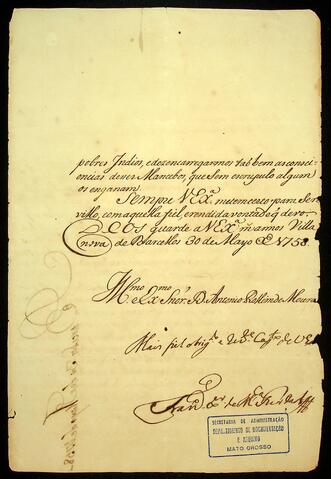 pobres Indios, e desencarregarmos tãobem as consci-
encias desses Mancebos, que sem escrupulo algum
os enganam.
Sempre V Ex.ª me tem certo para ser-
villo, com aquella fiel, e rendida vontade q̃ devo.
DEOS guarde a V Ex.ª m.s annos Villa
nova de Barcellos 30 de Mayo de 1758
Ill.mo e Ex.mo Snõr. D. Antonio Rolim de Moura
Mais fiel obrig.
SECRETARIA DE ADMINISTRAÇÃO
DEPARTAMENTO DE DOCUMENTAÇÃO
E ARQUIVO
MATO GROSSO